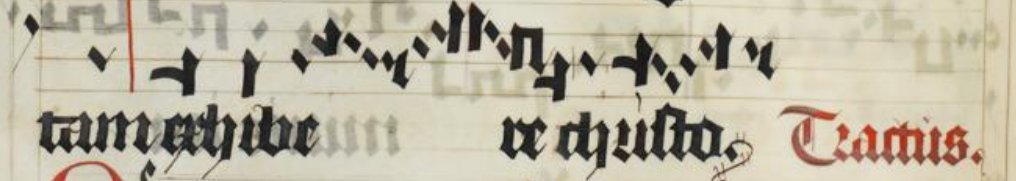 tam exhibe re christo. Tractus.